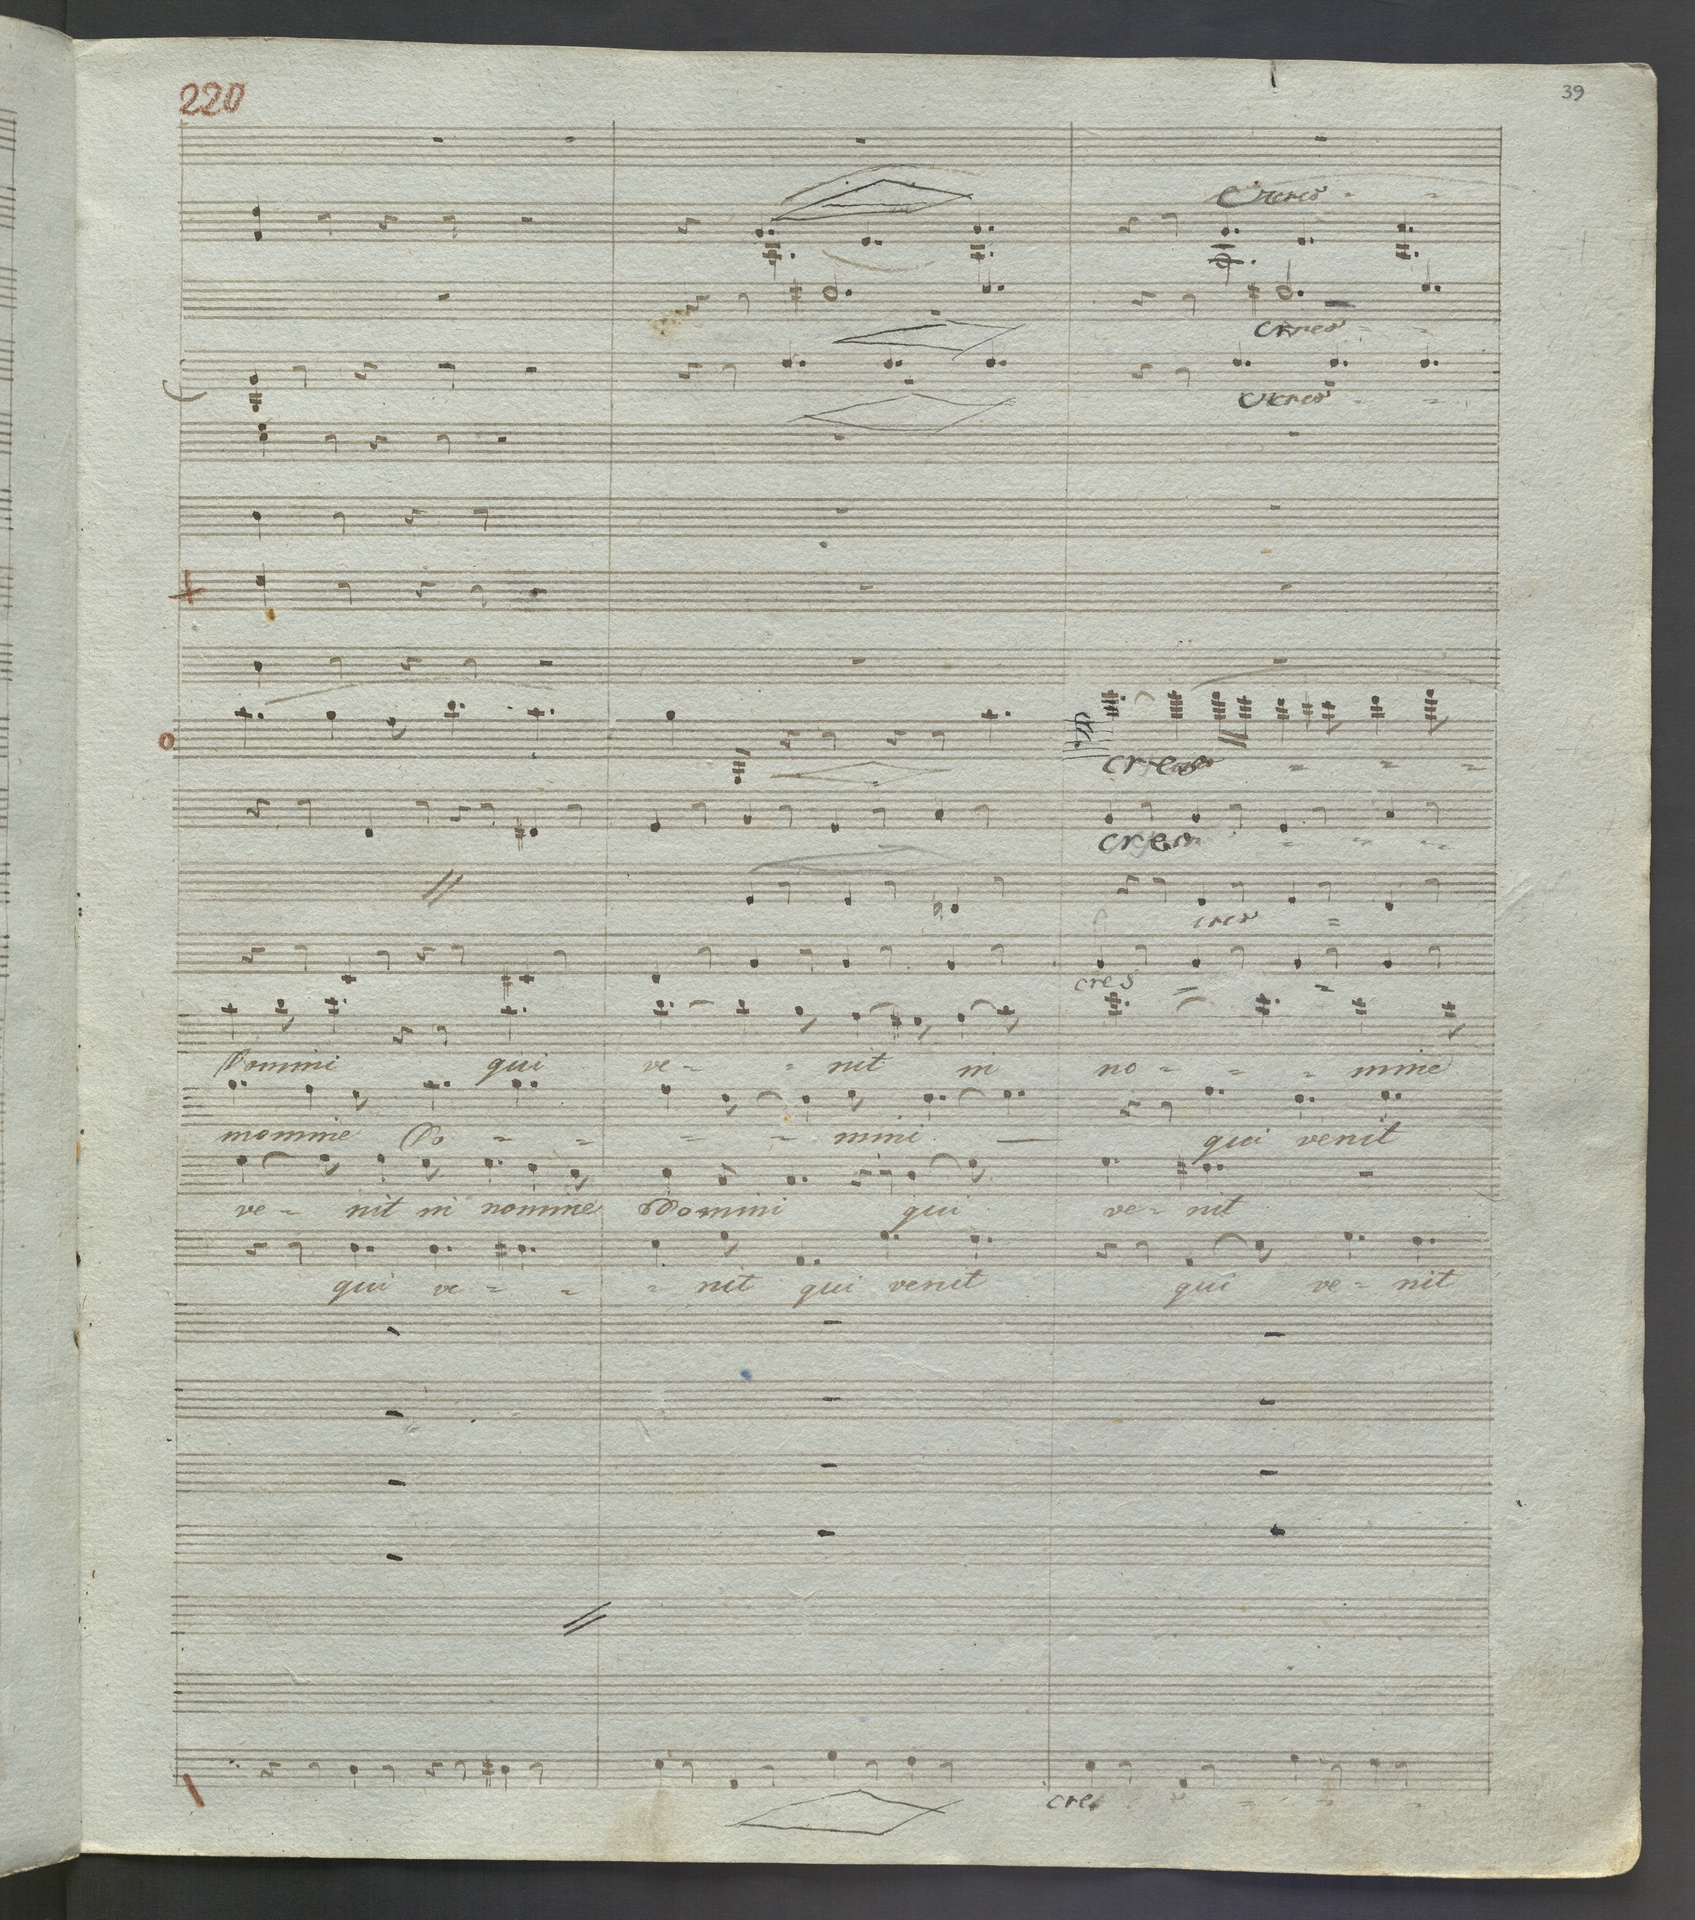 220
39
Cres - -
cres - -
cres - -
cres - - -
cres - - -
cres -
cres - -
Domini qui ve - - nit in no - - - mine
nomine Do - - - - mini — qui venit
ve - nit in nomine Domini qui ve - nit
qui ve - - - nit qui venit qui ve - nit
cres - - -